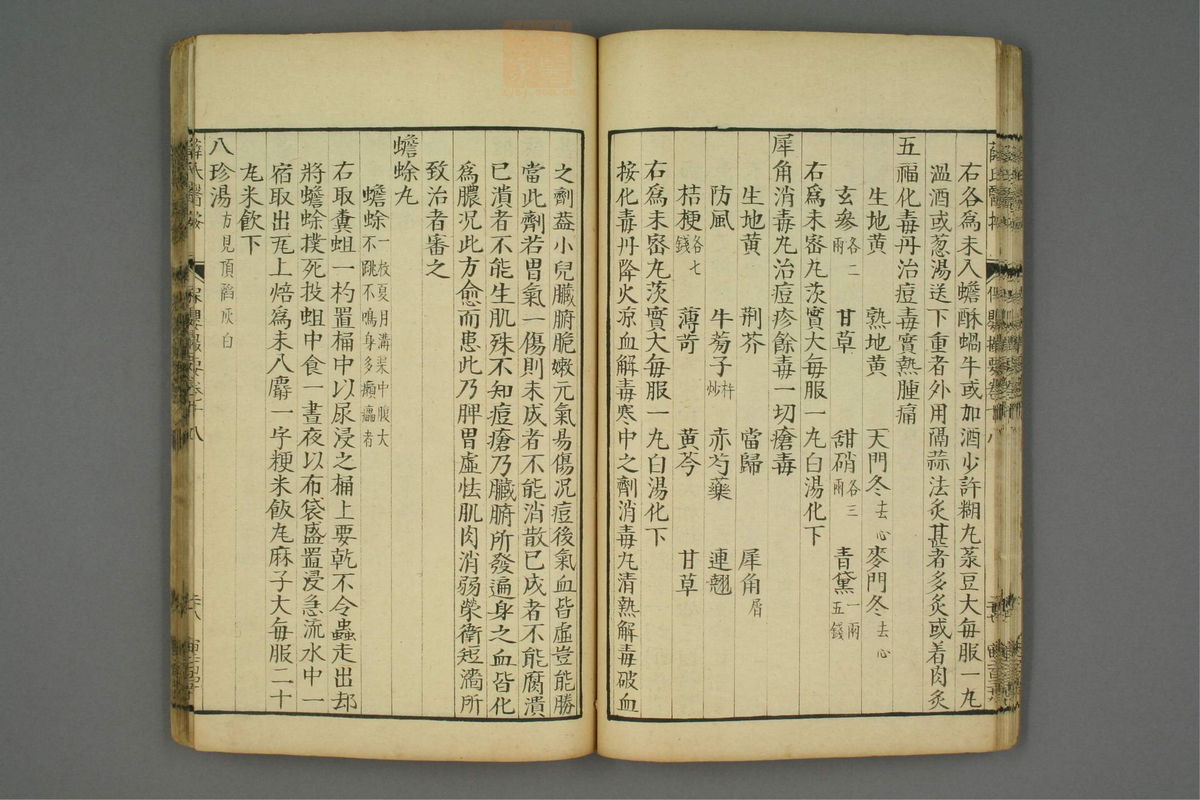 右各爲末入蟾酥蝸牛或加酒少許糊丸菉豆大每服一丸
溫酒或葱湯送下重者外用隔蒜法炙甚者多炙或着肉炙
五福化毒丹治痘毒實熱腫痛
生地黃 熟地黃 天門冬去心 麥門冬去心
玄參各二兩 甘草 甜硝各三兩 青黛一兩五錢
右爲末密丸茨實大每服一丸白湯化下
犀角消毒丸治痘疹餘毒一切瘡毒
生地黃 荆芥 當歸 犀角屑
防風 牛蒡子杵炒 赤芍藥 連翹
桔梗各七錢 薄苛 黃芩 甘草
右爲末密丸茨實大每服一丸白湯化下
按化毒丹降火凉血解毒寒中之劑消毒丸清熱解毒破血
之劑葢小兒臟腑脆嫩元氣易傷况痘後氣血皆虛豈能勝
當此劑若胃氣一傷則未成者不能消散已成者不能腐潰
已潰者不能生肌殊不知痘瘡乃臟腑所發遍身之血皆化
爲膿况此方愈而患此乃脾胃虛怯肌肉消弱榮衛短濇所
致治者審之
蟾蜍丸
蟾蜍一枚夏月溝渠中腹大不跳不鳴身多癩𤺺者
右取糞蛆一杓置桶中以尿浸之桶上要乾不令蟲走出却
將蟾蜍撲死投蛆中食一晝夜以布袋盛置浸急流水中一
宿取出瓦上焙爲末入麝一字粳米飯丸麻子大每服二十
丸米飲下
八珍湯方見頂陷灰白